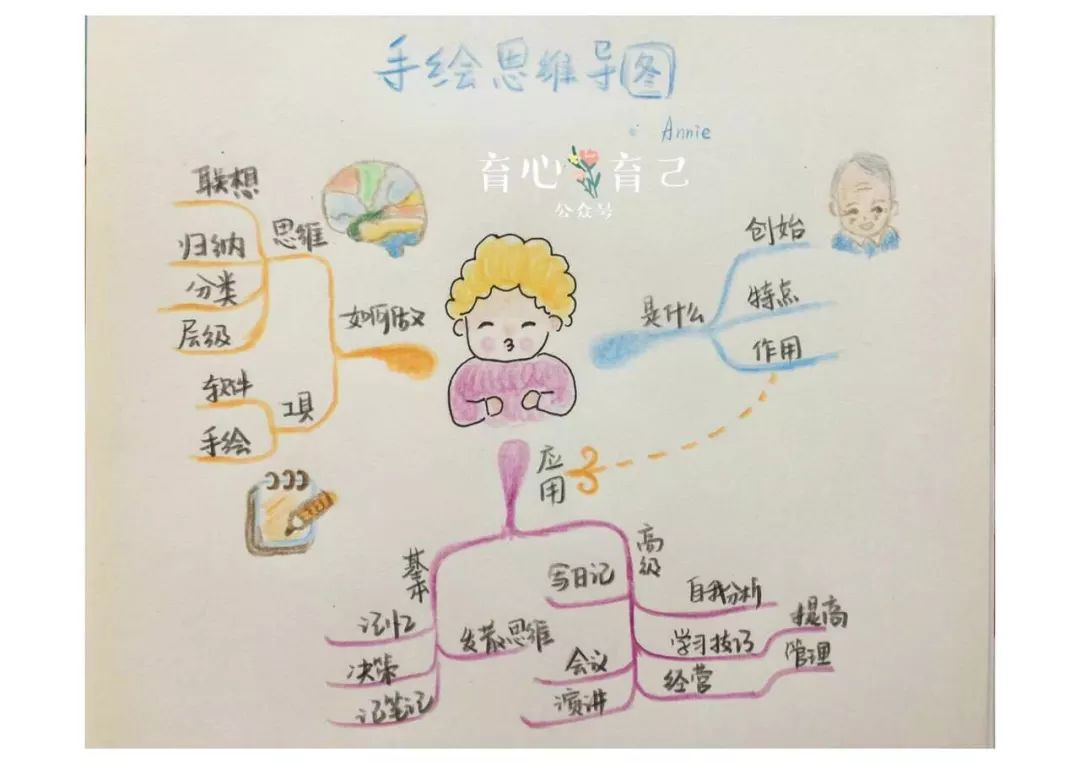 手绘思维导图
Annie
育心育己
公众号
是什么
创始
特点
作用
应用
高级
写日记
自我分析
学习技巧
提高
经营
管理
会议
演讲
基本
记忆
发散思维
决策
记笔记
如何做
思维
联想
归纳
分类
层级
工具
软件
手绘